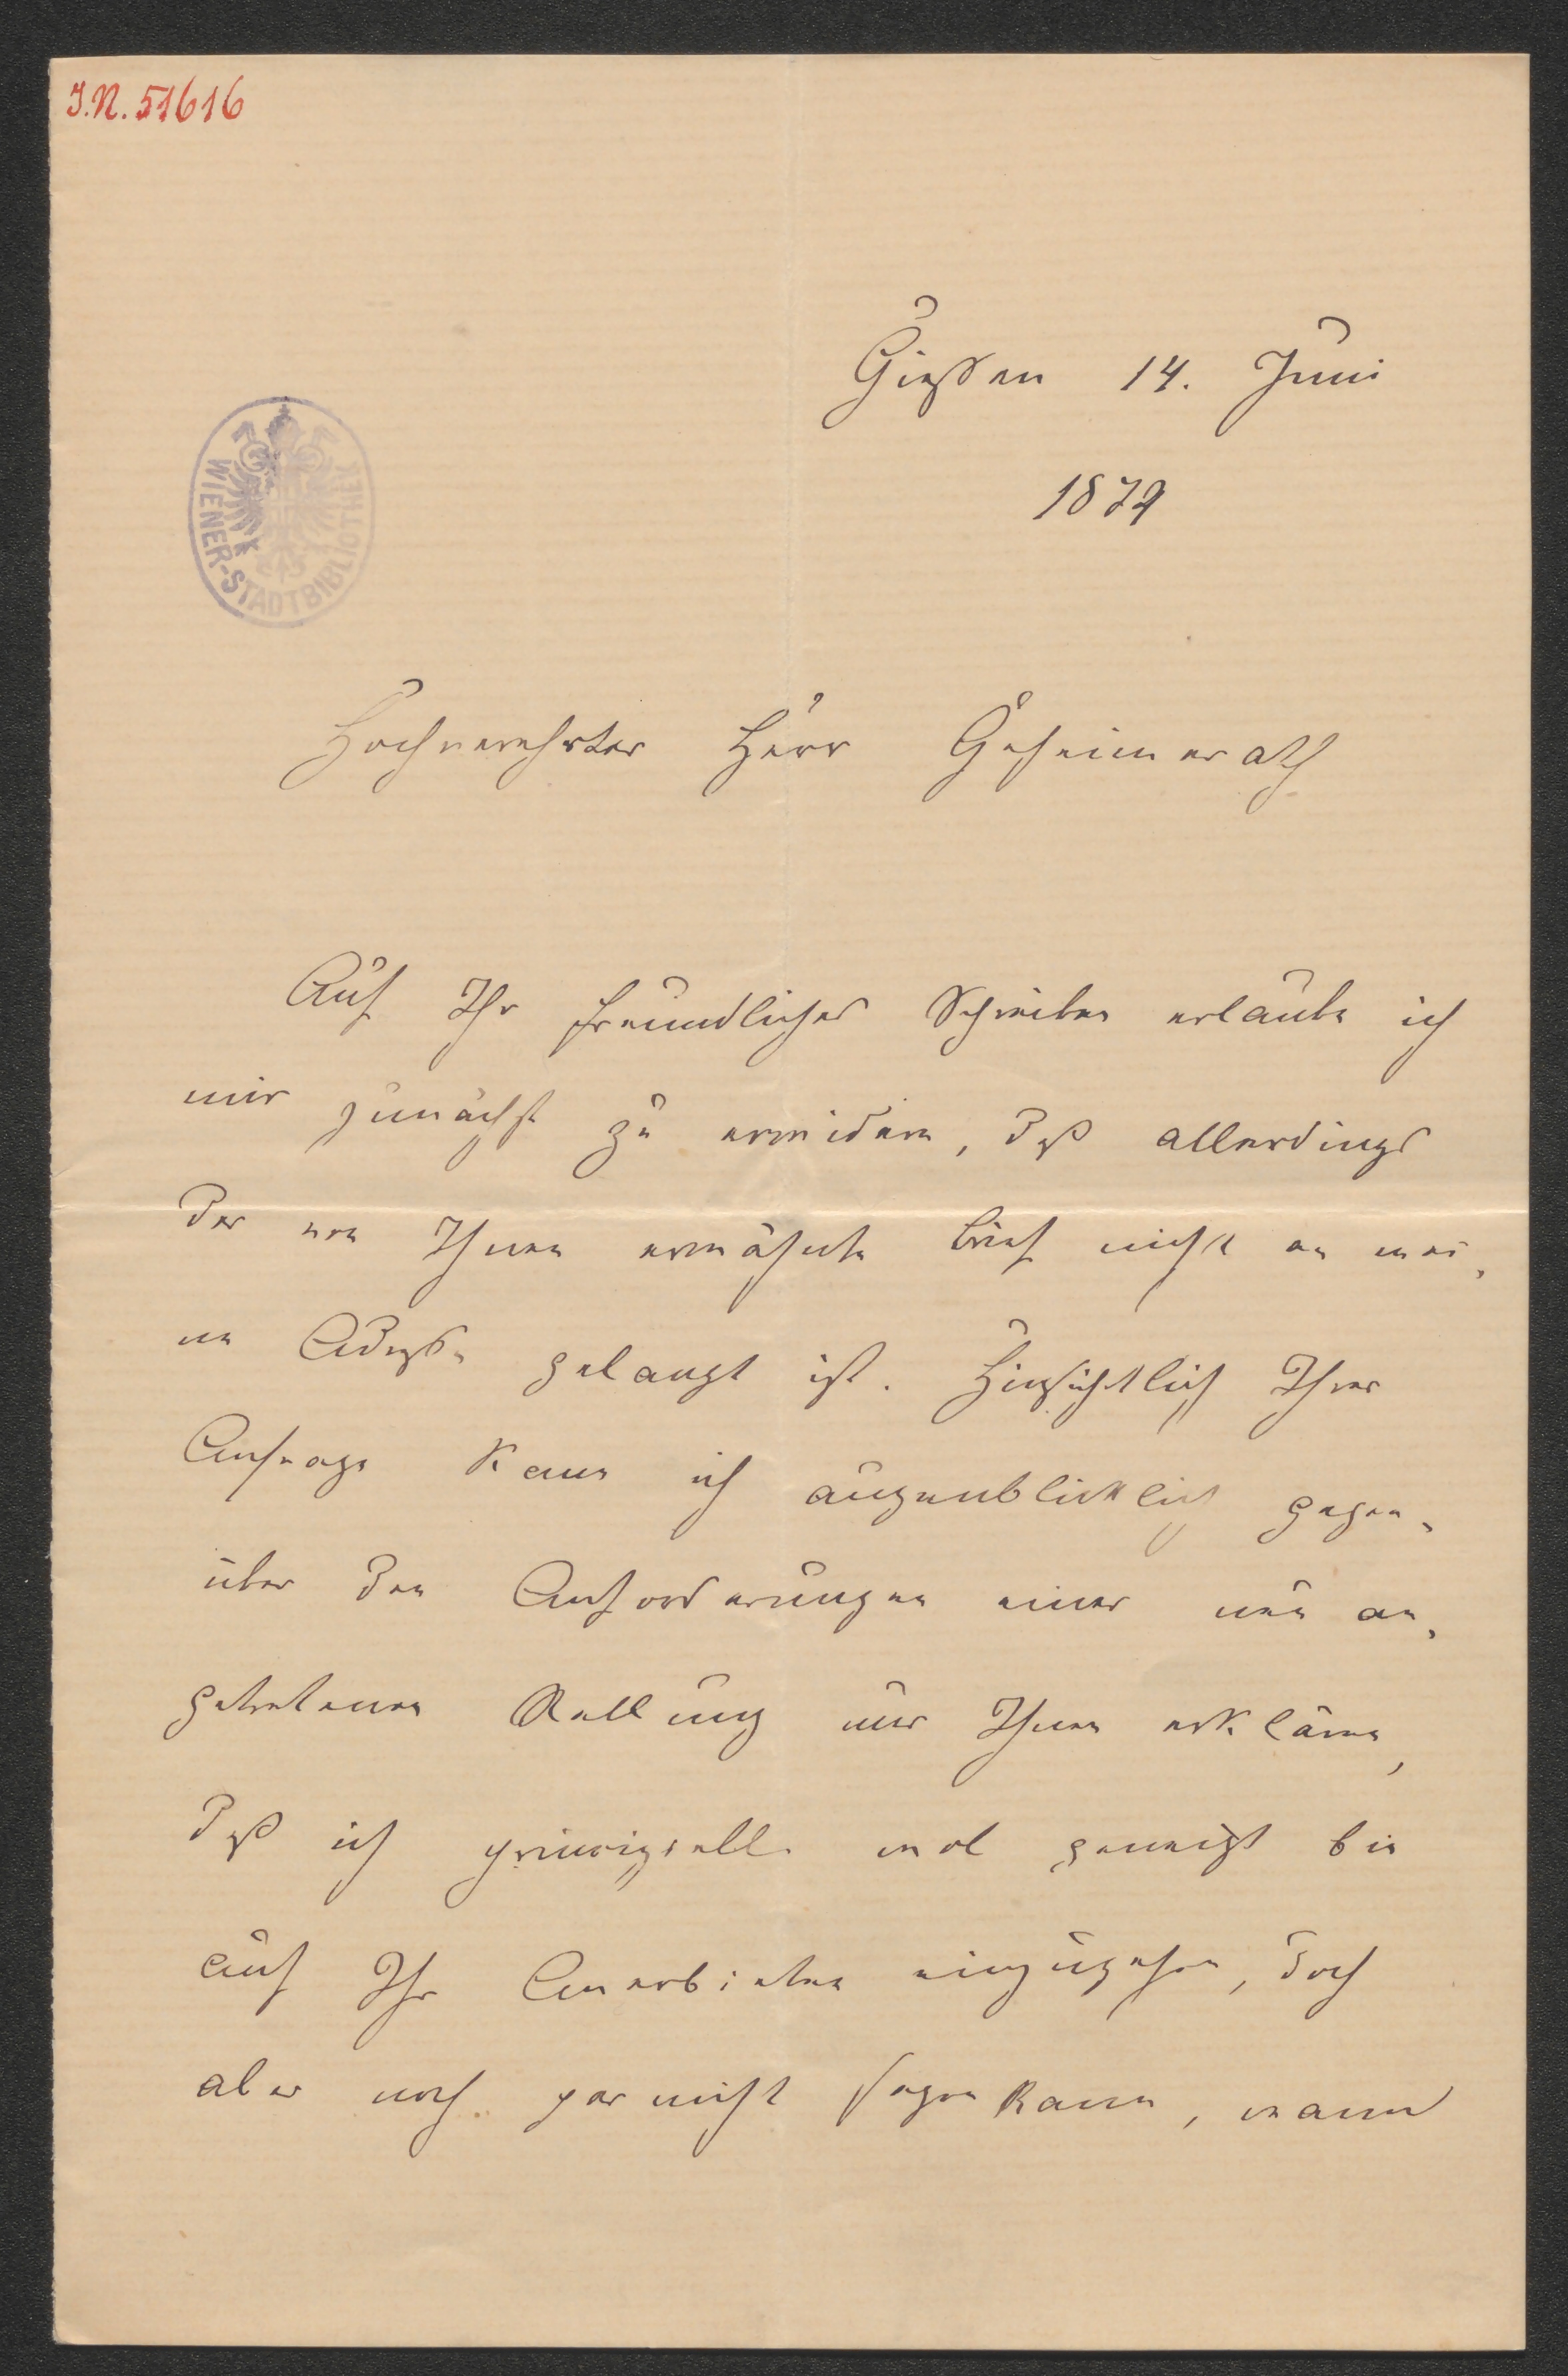 I.N. 51616
Giessen 14. Juni
1879
WIENER-STADTBIBLIOTHEK
Hochverehrter Herr Geheimerath
Auf Ihr freundliches Schreiben erlaube ich
mir zunächst zu erwidern, daß allerdings
der von Ihnen erwähnte Brief nicht an mei-
ne Adresse gelangt ist. Hinsichtlich Ihrer
Anfrage kann ich augenblicklich gegen-
über den Anforderungen einer neu an-
getretenen Stellung nur Ihnen erklären,
daß ich principiell wol geneigt bin
auf Ihr Anerbieten einzugehen, doch
aber noch gar nicht sagen kann, wann